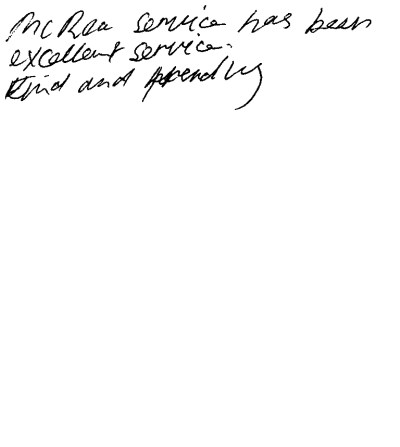 McRea service has been
excellent service.
Kind and friendly